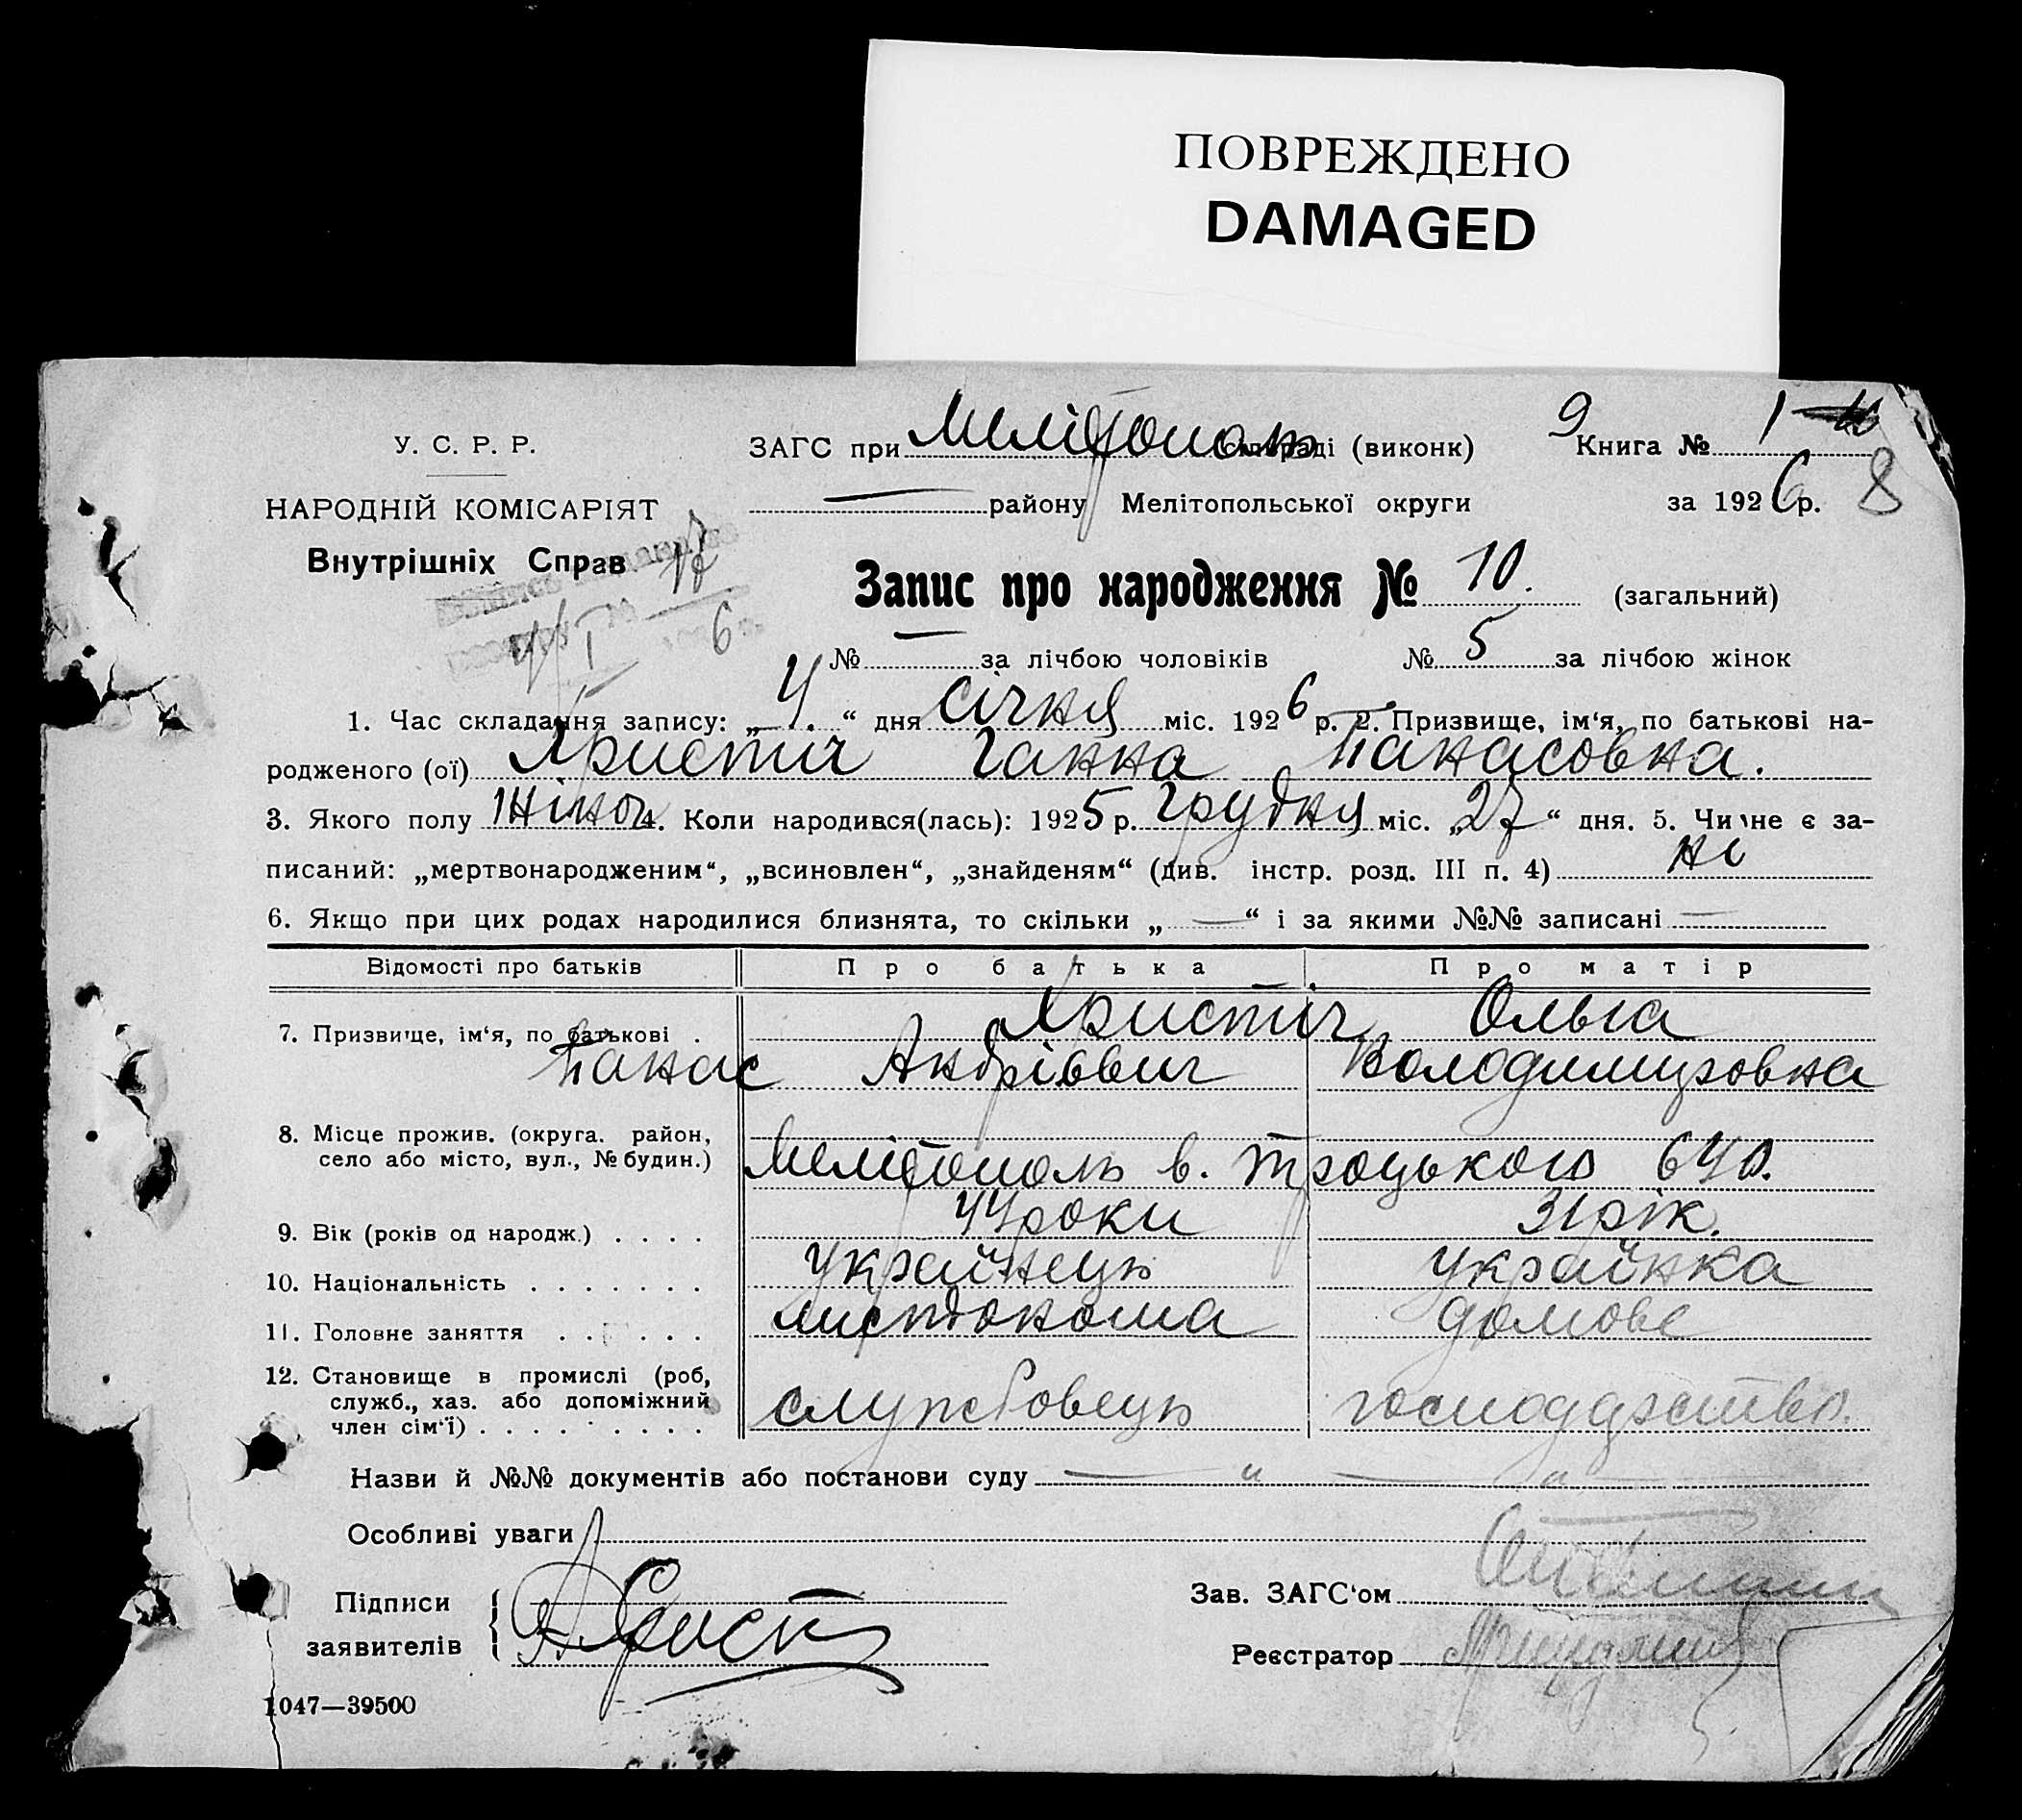 ПОВРЕЖДЕНО
DAMAGED
У. С. Р. Р.
НАРОДНІЙ КОМІСАРІЯТ
Внутрішніх Справ
ЗАГС при Мелітополь раді (виконк) 9 Книга № 1
— району Мелітопольської округи за 1926 р. 8
Запис про народження № 10. (загальний)
№ — за лічбою чоловіків № 5 за лічбою жінок
1. Час складання запису: „ 4. “ дня січня міс. 1926 р. 2. Призвище, ім'я, по батькові на-
родженого (ої) Христич Ганна Панасовна.
3. Якого полу жіноч 4. Коли народився(лась): 1925 р. Грудня міс. „27“ дня. 5. Чи не є за-
писаний: „мертвонародженим“, „всиновлен“, „знайденям“ (див. інстр. розд. III п. 4) ні
6. Якщо при цих родах народилися близнята, то скільки „ — “ і за якими №№ записані —
Відомості про батьків Про батька Про матір
7. Призвище, ім'я, по батькові . Христич Ольга
Панас Андріввич Володимировна
8. Місце прожив. (округа. район,
село або місто, вул., № будин.) Мелітополь в. Троцького 64
9. Вік (років од народж.) . . . . 44 роки 31 рік.
10. Національність . . . . . . . українець українка
11. Головне заняття . . . . . листоноша домове
12. Становище в промислі (роб,
служб., хаз. або допоміжний
член сім'ї) . . . . . . . . службовець господарство.
Назви й №№ документів або постанови суду — " — " —
Особливі уваги
Підписи
заявителів
Зав. ЗАГС'ом
Реєстратор
1047—39500